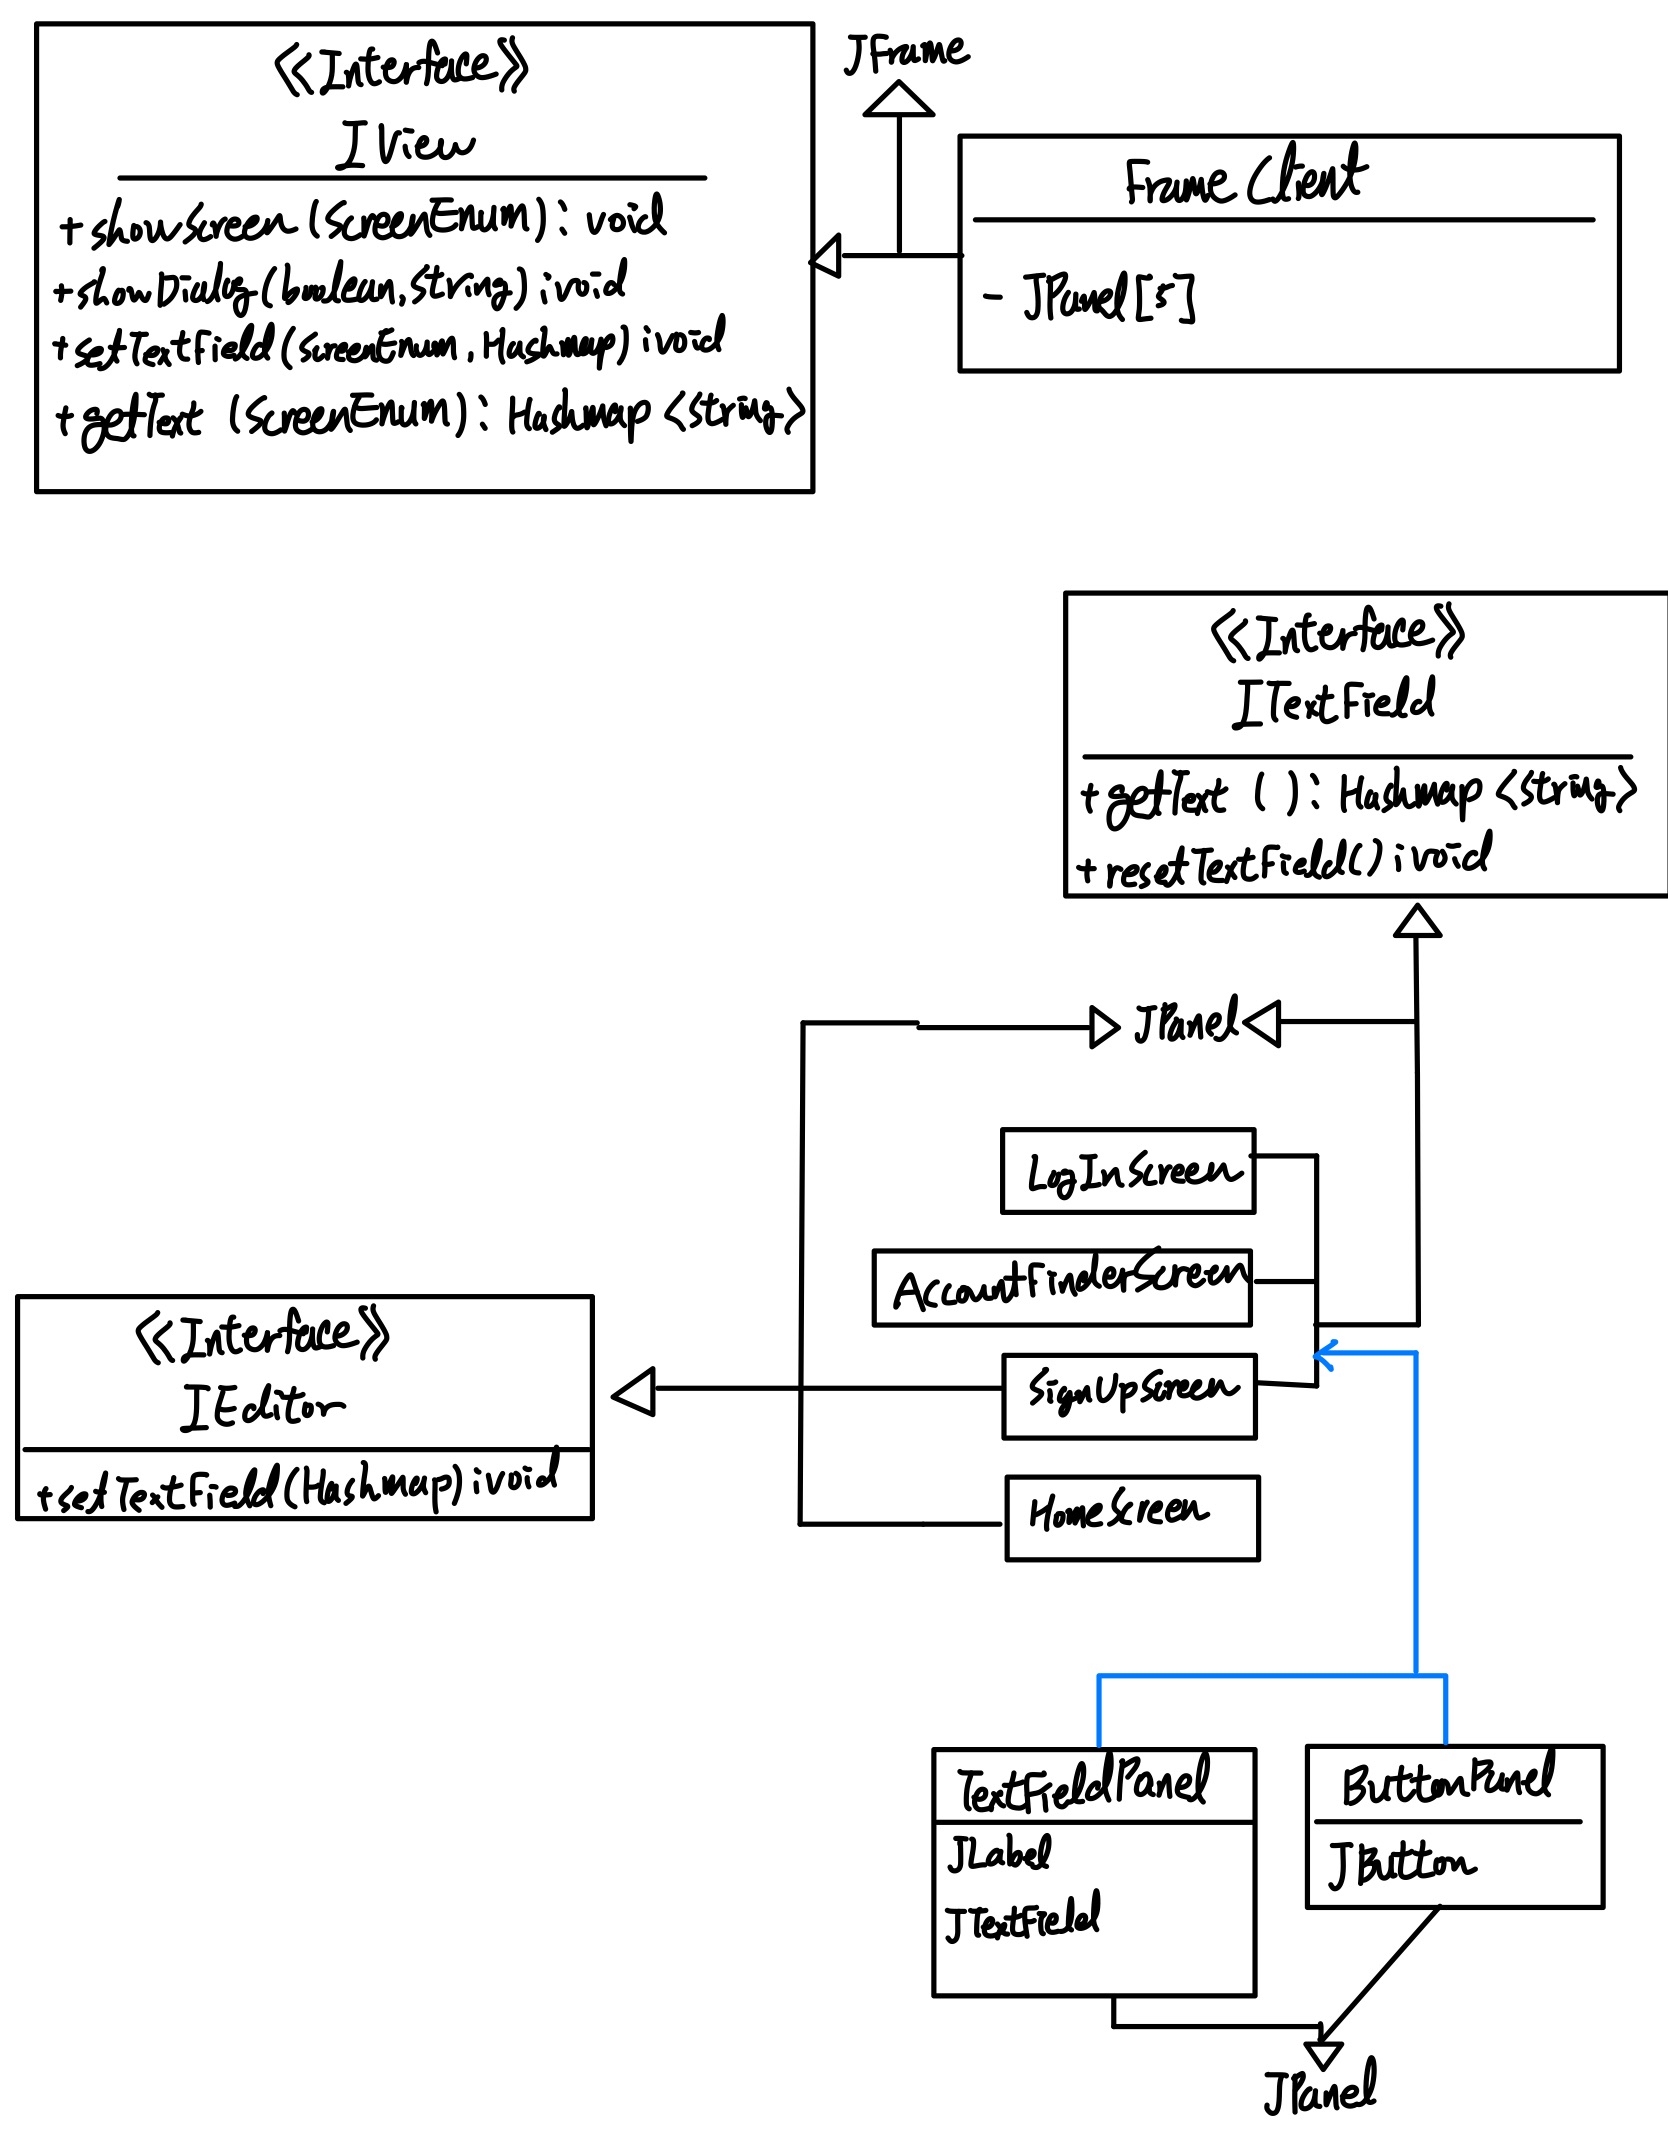 《Interface》
IView
+showScreen (ScreenEnum): void
+showDialog(boolean, String): void
+setTextField(ScreenEnum, Hashmap): void
+getText (ScreenEnum): Hashmap <String>
JFrame
Frame Client
- JPanel[5]
《Interface》
ITextField
+getText ( ): Hashmap <String>
+resetTextField(): void
JPanel
LogInScreen
AccountFinderScreen
SignUpScreen
HomeScreen
《Interface》
IEditor
+setTextField(Hashmap): void
TextFieldPanel
JLabel
JTextField
ButtonPanel
JButton
JPanel